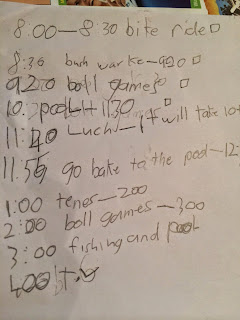 8.00—8:30 bike ride
8:30 bush war ke—920
920 boll games
10. pool—1130
11:40 Luch—it will take 10
11:50 go bake to the pool—12:
1:00 tenes—200
2:00 boll games—300
3:00 fishing and pool
400 t.v